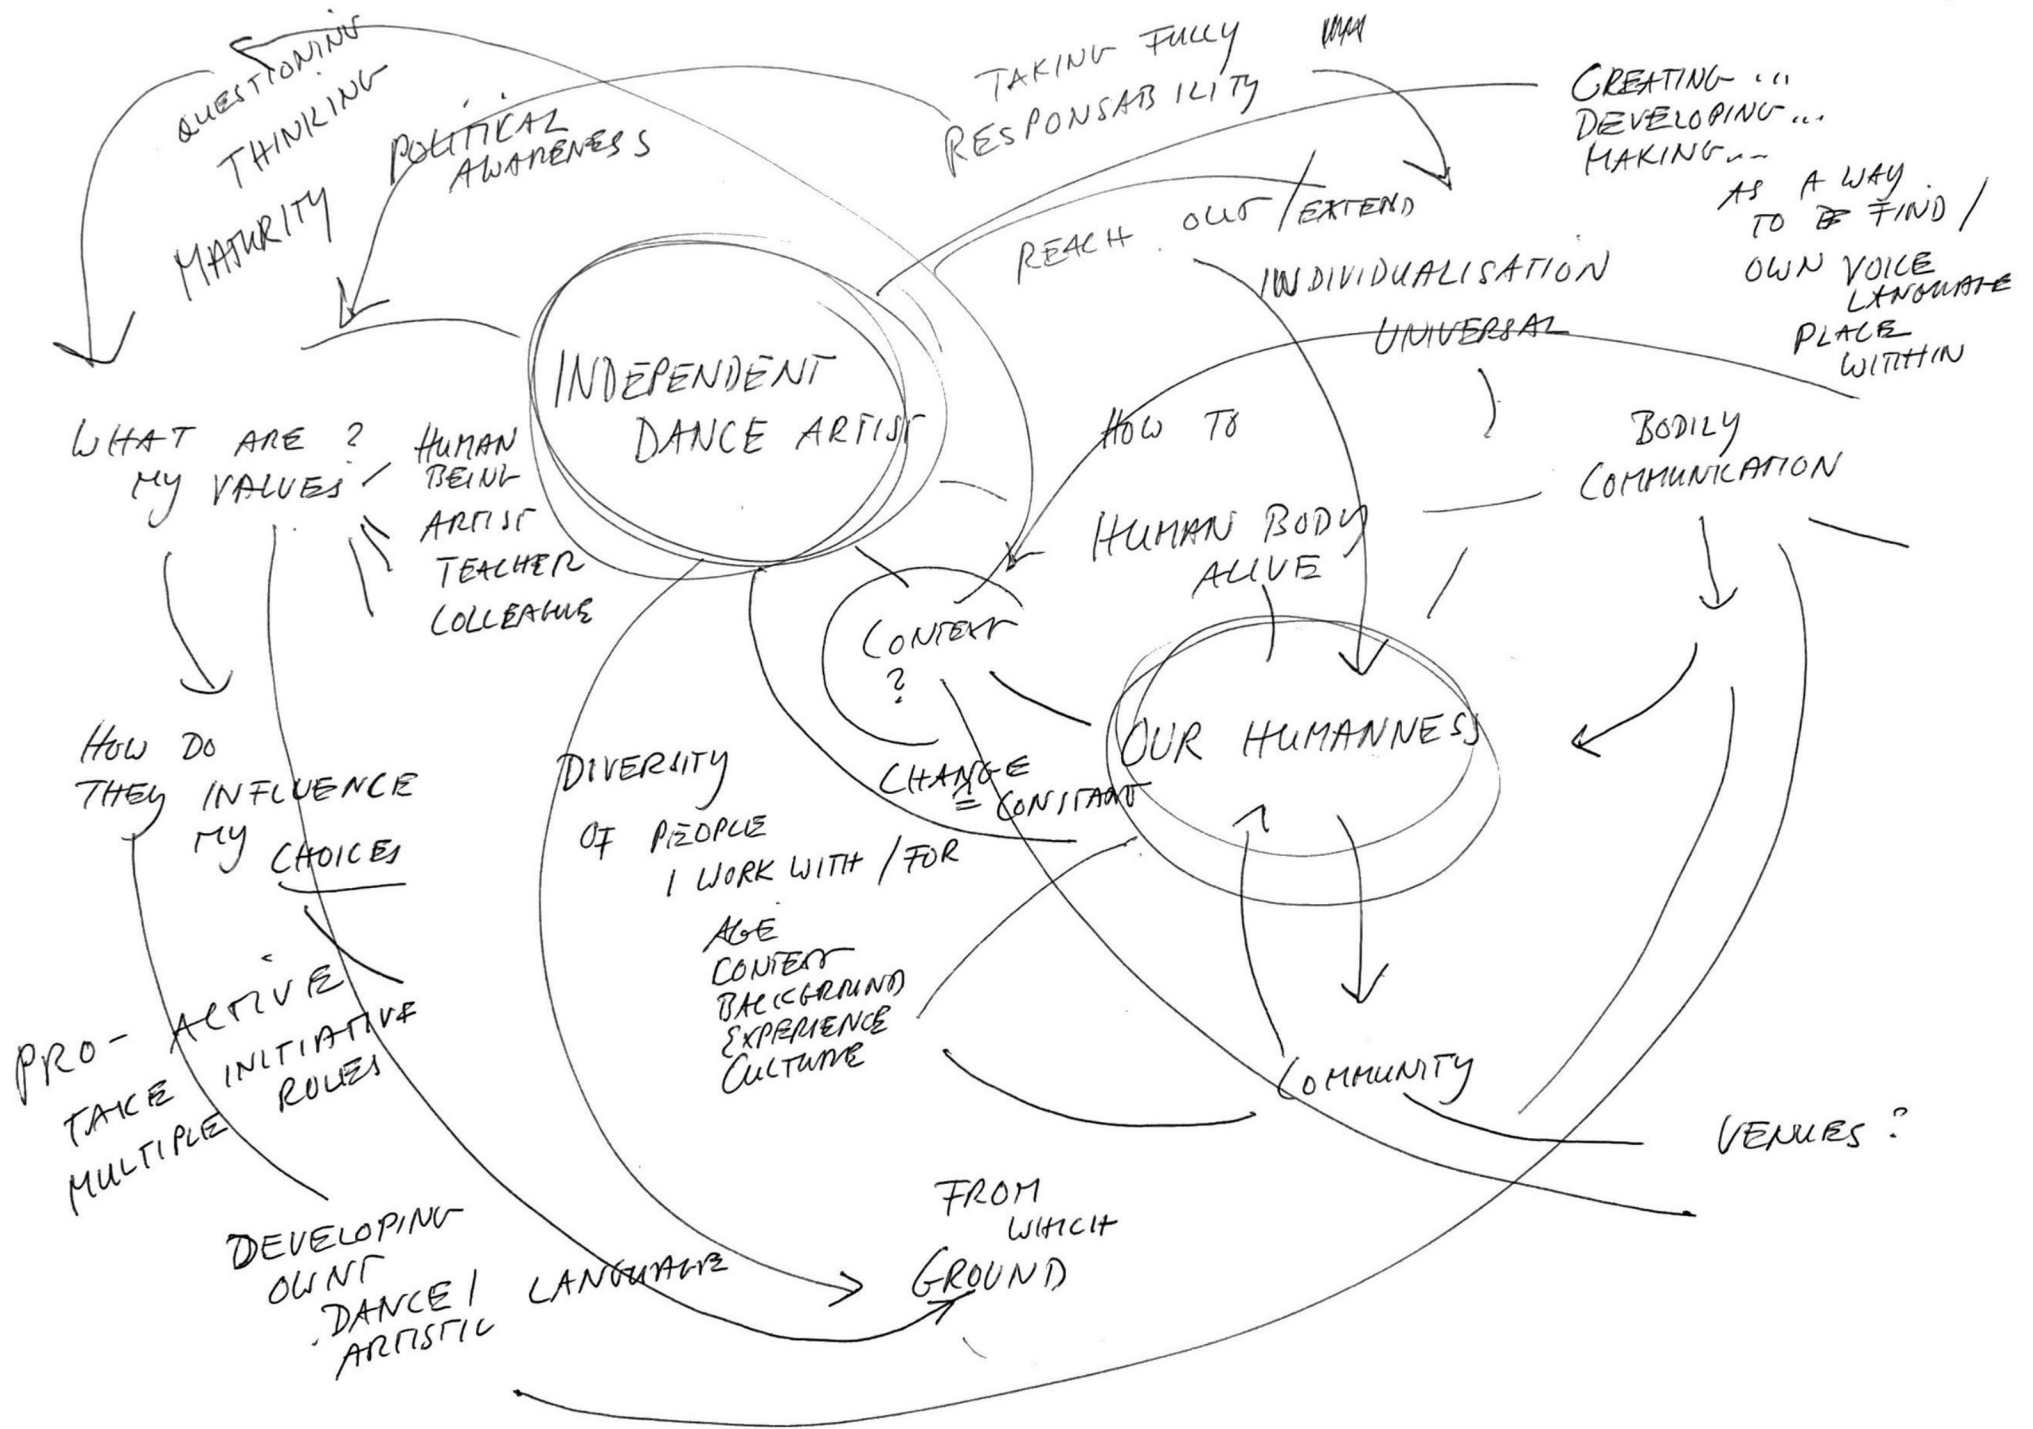 QUESTIONING
THINKING
MATURITY
POLITICAL
AWARENESS
TAKING FULLY
RESPONSABILITY
CREATING ...
DEVELOPING ...
MAKING ...
AS A WAY
TO FIND /
OWN VOICE
LANGUAGE
PLACE
WITHIN
REACH OUT / EXTEND
INDIVIDUALISATION
UNIVERSAL
INDEPENDENT
DANCE ARTIST
WHAT ARE ?
MY VALUES
HUMAN
BEING
ARTIST
TEACHER
COLLEAGUE
HOW TO
HUMAN BODY
ALIVE
BODILY
COMMUNICATION
CONTEXT
?
OUR HUMANNESS
CHANGE
= CONSTANT
HOW DO
THEY INFLUENCE
MY CHOICES
DIVERSITY
OF PEOPLE
I WORK WITH / FOR
AGE
CONTEXT
BACKGROUND
EXPERIENCE
CULTURE
PRO-ACTIVE
TAKE INITIATIVE
MULTIPLE ROLES
COMMUNITY
VENUES ?
FROM
WHICH
GROUND
DEVELOPING
OWNT
DANCE /
ARTISTIC LANGUAGE